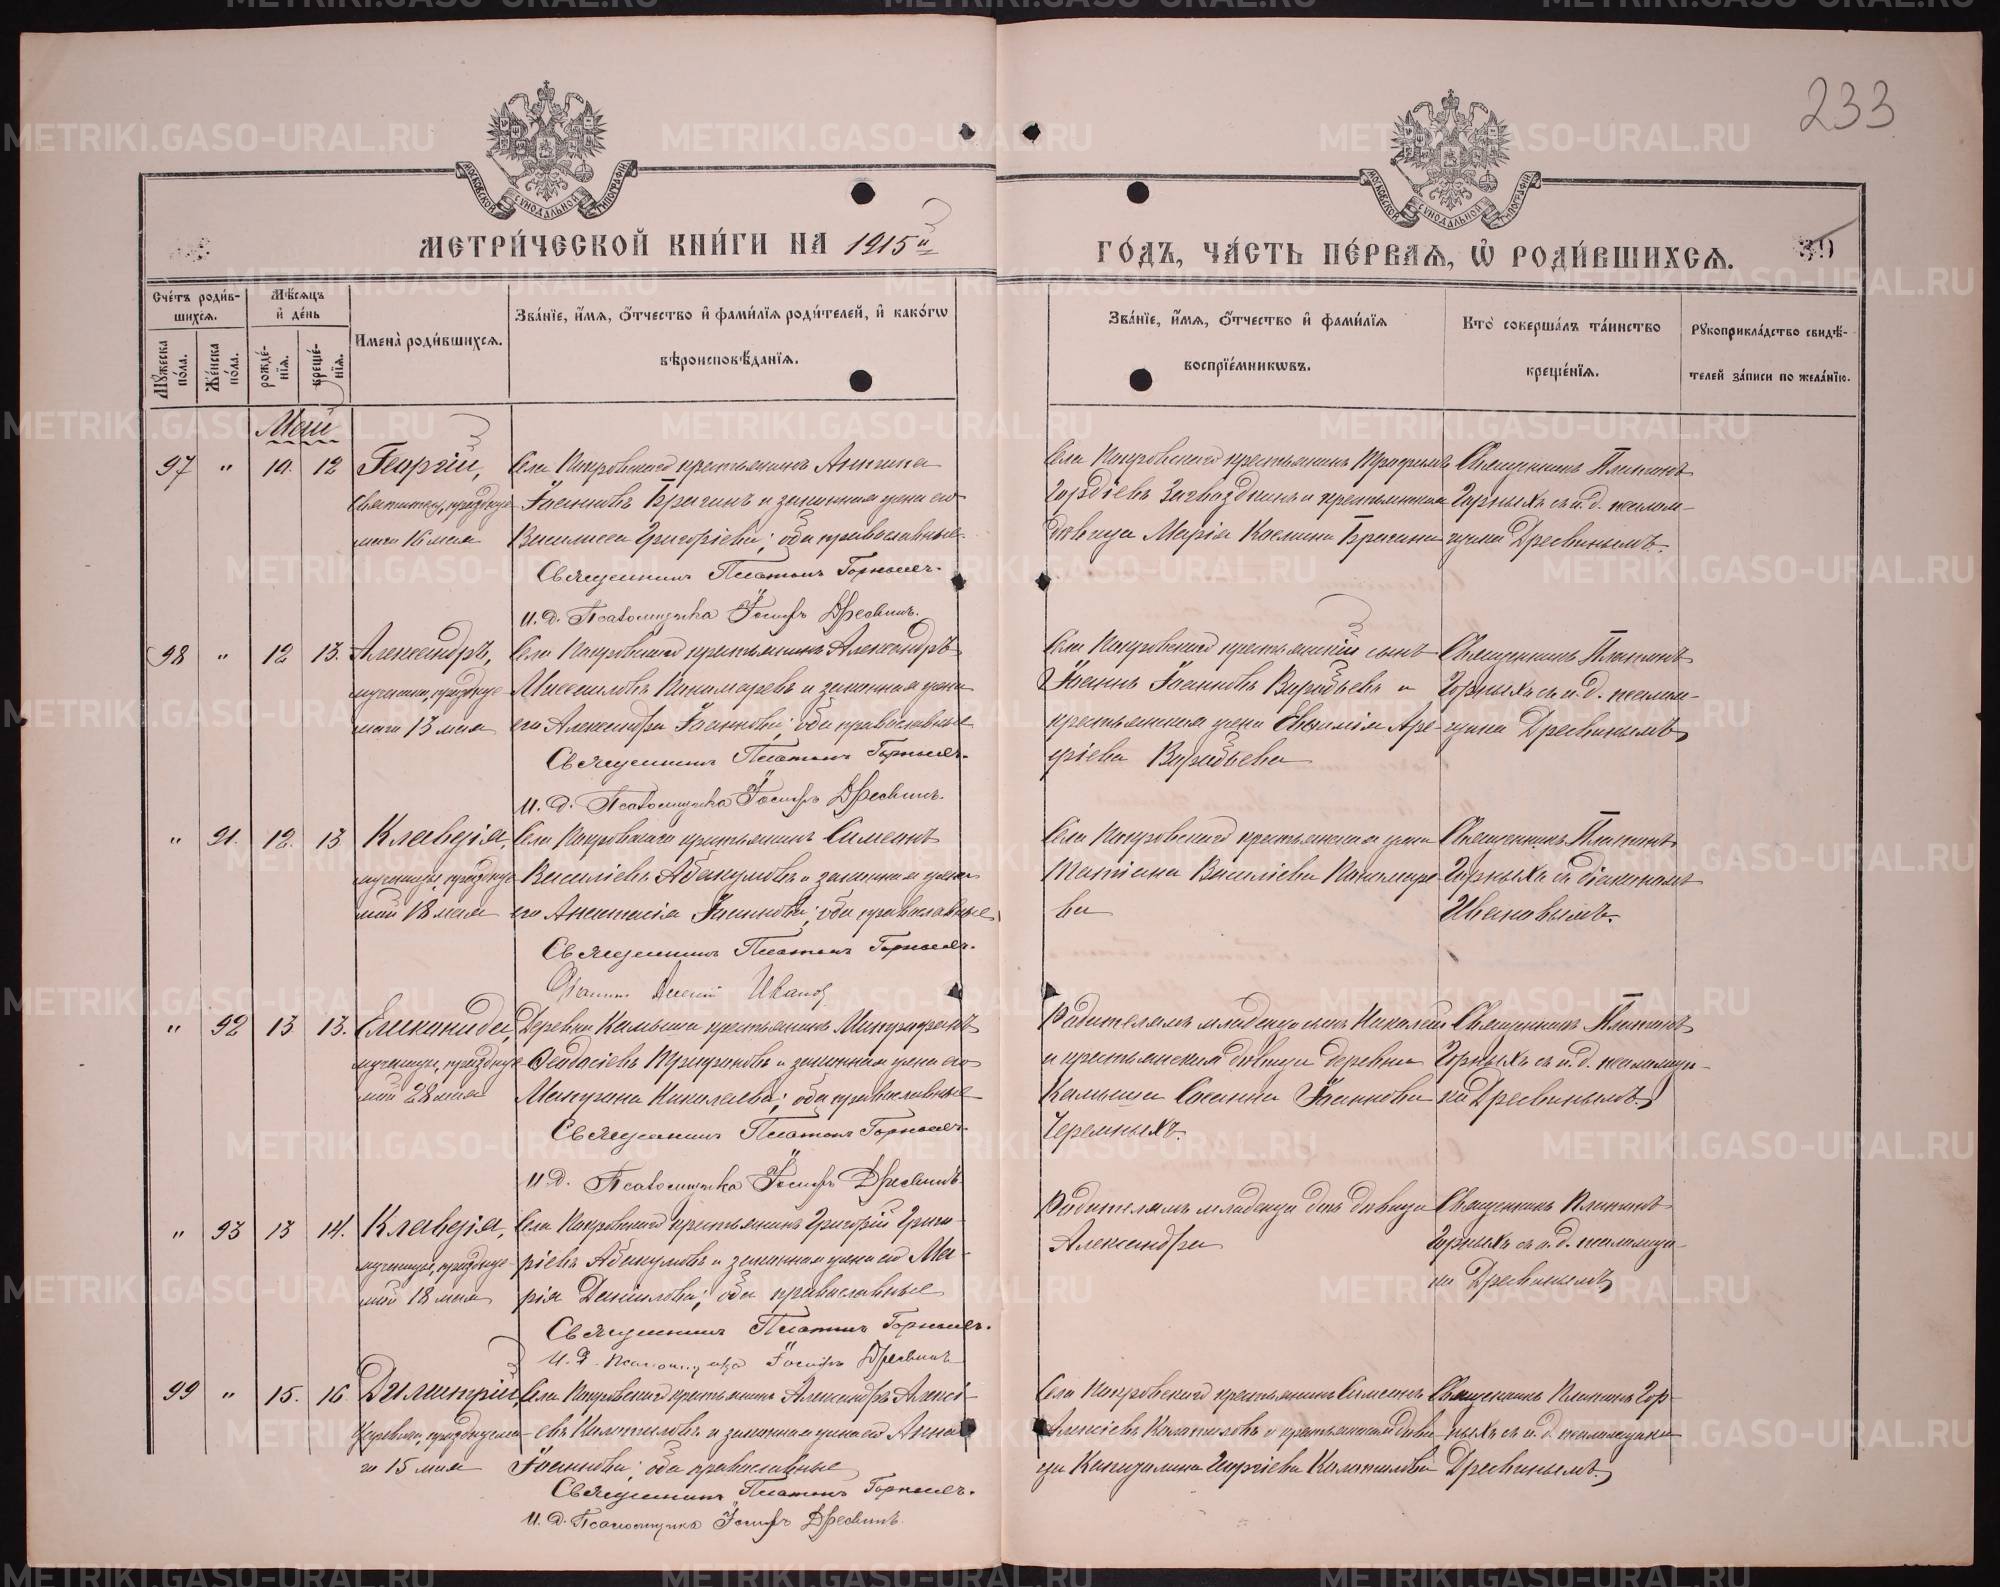 233
МОСКОВСКОЙ СУНОДАЛЬНОЙ ТИПОГРАФІИ
МОСКОВСКОЙ СУНОДАЛЬНОЙ ТИПОГРАФІИ
МЕТРИ́ЧЕСКОЙ КНИ́ГИ НА 1915й
ГО́ДЪ, ЧА́СТЬ ПЕ́РВАЯ, Ѡ РОДИ́ВШИХСЯ.
39
Сче́тъ роди́вшихся.
Мѣ́сяцъ и де́нь
Имена̀ роди́вшихся.
Зва́нїе, и́мя, о́тчество и фами́лїя роди́телей, и како́гѡ вѣроисповѣ́данїя.
Зва́нїе, и́мя, о́тчество и фами́лїя воспрїе́мникѡвъ.
Кто̀ соверша́лъ та́инство креще́нїя.
Рукоприкла́дство свидѣ́телей за́писи по жела́нїю.
Му́жеска по́ла.
Же́нска по́ла.
рожде́нїя.
креще́нїя.
Май
97 " 10. 12 Георгій,
святителя, празднуе
маго 16 мая
Села Покровского крестьянинъ
Іоанновъ Брагинъ и законная жена его
Василисса Григоріева; оба православные.
Священникъ Платонъ Горныхъ.
И. д. Псаломщика Іосифъ Дресвинъ.
Села Покровского крестьянинъ Трофимъ
Гордіевъ Загвоздкинъ и крестьянская
дѣвица Марія Брагина
Священникъ Платонъ
Горныхъ съ и. д. псалом-
щика Дресвинымъ.
98 " 12 13. Александръ,
мученика, празднуе
маго 13 мая
Села Покровского крестьянинъ Александръ
Пономаревъ и законная жена
его Александра Іоаннова; оба православные
Священникъ Платонъ Горныхъ.
И. д. Псаломщика Іосифъ Дресвинъ.
Села Покровского крестьянскій сынъ
Іоаннъ Іоанновъ Воробьевъ и
крестьянская жена Евфимія Аре-
Воробьева
Священникъ Платонъ
Горныхъ съ и. д. псалом-
щика Дресвинымъ
" 91. 12. 13 Клавдія,
мученицы, празднуе
мой 18 мая
Села Покровского крестьянинъ Симеонъ
Василіевъ Абакумовъ и законная жена
его Анастасія Іоаннова; оба православные
Священникъ Платонъ Горныхъ.
Діаконъ Иванов
Села Покровского крестьянская жена
Татіана Василіева Пономаре
ва
Священникъ Платонъ
Горныхъ съ діакономъ
Ивановымъ.
" 92 13 13. Еликонида,
мученицы, празднуе
мой 28 мая
Деревни Камыша крестьянинъ Митрофанъ
Ѳеодосіевъ и законная жена его
Николаева; оба православные
Священникъ Платонъ Горныхъ.
И. д. Псаломщика Іосифъ Дресвинъ.
Родителямъ младенца сынъ Николай
и крестьянская дѣвица деревни
Камыша Іоаннова
Черемныхъ.
Священникъ Платонъ
Горныхъ съ и. д. псаломщи-
ка Дресвинымъ
" 93 13 14. Клавдія,
мученицы, празднуе-
мой 18 мая
Села Покровского крестьянинъ Григорій Григо-
ріевъ Абакумовъ и законная жена его Ма-
рія Данилова; оба православные
Священникъ Платонъ Горныхъ.
И. д. Псаломщика Іосифъ Дресвинъ
Родителямъ младенца дочь дѣвица
Александра
Священникъ Платонъ
Горныхъ съ и. д. псаломщи-
ка Дресвинымъ
99 " 15. 16 Димитрій,
Царевича, празднуема
го 15 мая
Села Покровского крестьянинъ Александръ Алексі-
евъ Колотиловъ и законная жена его Анна
Іоаннова; оба православные
Священникъ Платонъ Горныхъ.
И. д. Псаломщика Іосифъ Дресвинъ.
Села Покровского крестьянинъ Симеонъ
Алексіевъ Колотиловъ и крестьянская дѣви-
ца Капитолина Георгіева Колотилова
Священникъ Платонъ Гор-
ныхъ съ и. д. псаломщика
Дресвинымъ
METRIKI.GASO-URAL.RU